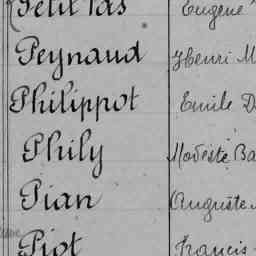 Petit Pas Eugène
Peynaud Henri M
Philippot Emile D
Phily Modeste Ba
Pian Auguste
Piot Francis